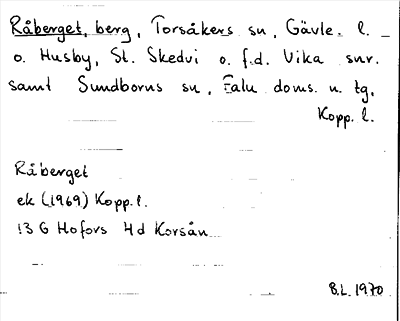 Råberget, berg, Torsåkers sn, Gävle. l.
o. Husby, St. Skedvi o. f.d. Vika snr.
samt Sundborns sn, Falu doms. n. tg,
Kopp. l.
Råberget
ek (1969) Kopp. l.
13 G Hofors 4d Korsån
B.L. 1970